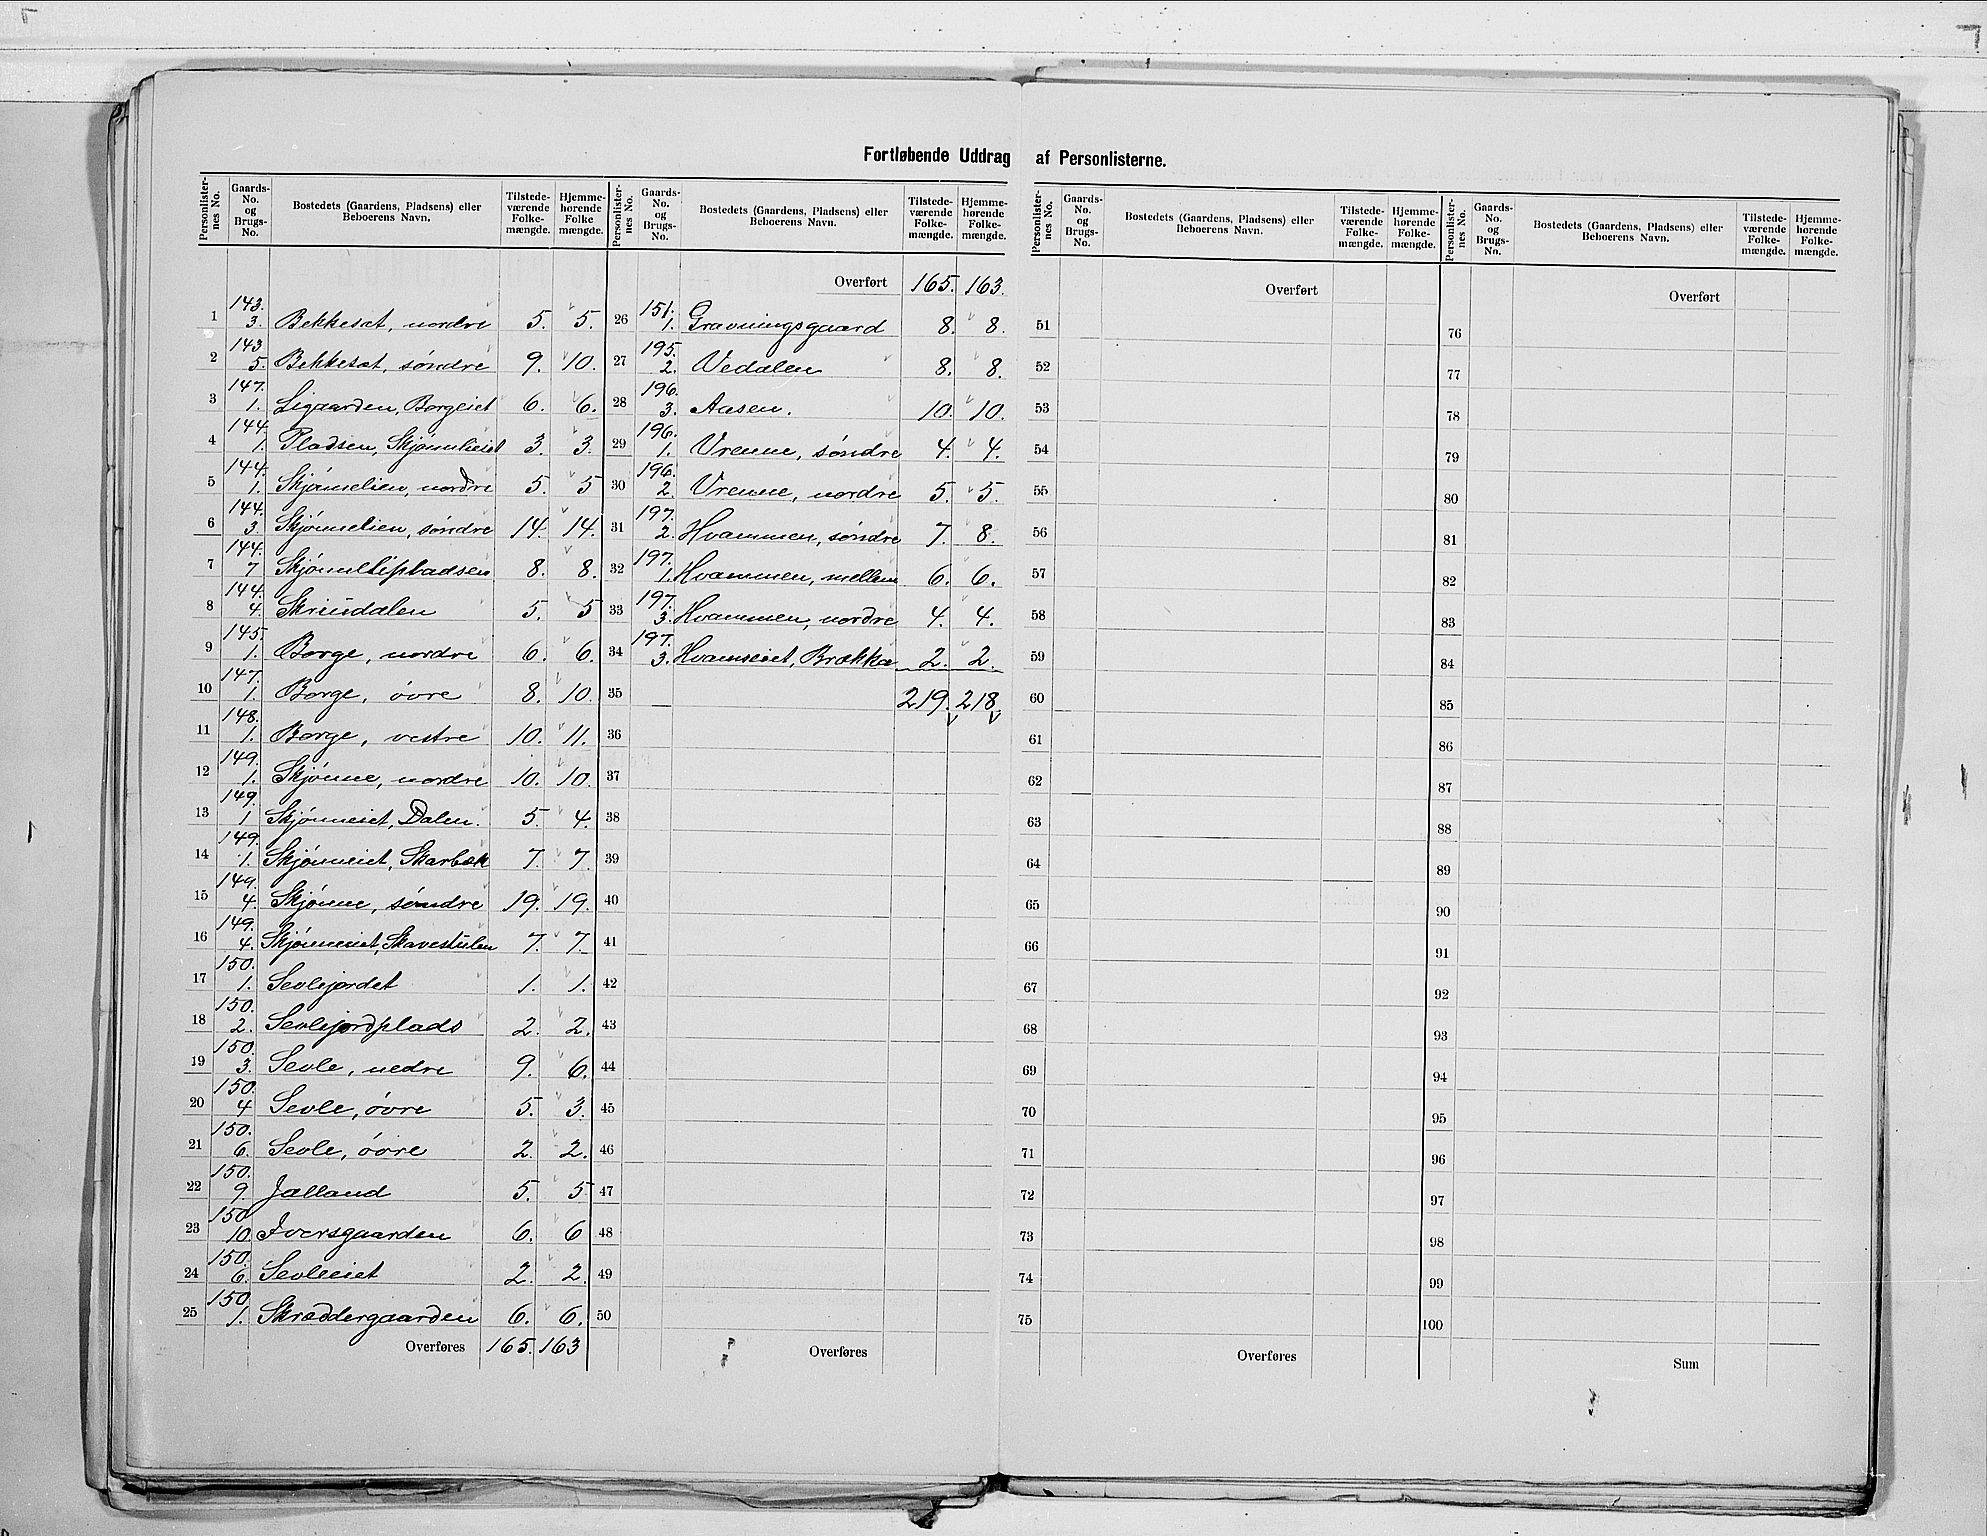 Fortløbende Uddrag af Personlisterne.
Personlister-nes No. Gaards-No. og Brugs-No. Bostedets (Gaardens, Pladsens) eller Beboerens Navn. Tilstede-værende Folke-mængde. Hjemme-hørende Folke mængde.
1 143. 3. Bekkesæt, nordre 5. 5.
2 143. 5. Bekkesæt, søndre 9. 10.
3 147. 1. Ligaarden, Borgeiet 6. 6.
4 144. 1. Pladsen, Skjønnlieiet 3. 3.
5 144. 1. Skjønnelien, nordre 5. 5
6 144. 3. Skjønnelien, søndre 14. 14.
7 144. 7 Skjønnelipladsen 8. 8.
8 144. 4. Skrindalen 5. 5
9 145. 1. Borge, nordre 6. 6.
10 147. 1. Borge, øvre 8. 10.
11 148. 1. Borge, vestre 10. 11.
12 149. 1. Skjønne, nordre 10. 10.
13 149. 1 Skjønneiet, Dalen. 5. 4.
14 149. 1. Skjønneiet, Skarbæk 7. 7.
15 149. 4. Skjønne, søndre 19. 19.
16 149. 4. Skjønneiet, Skavestulen 7. 7.
17 150. 1. Sevlejordet 1. 1.
18 150. 2. Sevlejordplads 2. 2.
19 150. 3. Sevle, nedre 9. 6.
20 150. 4 Sevle, øvre 5. 3.
21 150. 6. Sevle, øvre 2. 2.
22 150. 9. Jælland 5. 5
23 150 10. Iversgaarden 6. 6
24 150. 6. Sevleeiet 2. 2.
25 150 1. Skræddergaarden 6. 6.
Overføres 165. 163
Personlister-nes No. Gaards-No. og Brugs-No. Bostedets (Gaardens, Pladsens) eller Beboerens Navn. Tilstede-værende Folke-mængde. Hjemme-hørende Folke-mængde.
Overført 165. 163.
26 151. 1. Gravningsgaard 8. 8.
27 195. 2. Vedalen 8. 8.
28 196. 3. Aasen. 10. 10.
29 196. 1. Vrenne, søndre 4. 4.
30 196. 2. Vrenne, nordre 5. 5.
31 197. 2. Hvammen, søndre 7. 8.
32 197. 1. Hvammen, mellem 6. 6.
33 197. 3. Hvammen, nordre 4. 4.
34 197. 3. Hvamseiet, Brækka 2. 2.
35 219. 218
36
37
38
39
40
41
42
43
44
45
46
47
48
49
50
Overføres
Personlister-nes No. Gaards-No. og Brugs-No. Bostedets (Gaardens, Pladsens) eller Beboerens Navn. Tilstede-værende Folke-mængde. Hjemme-hørende Folke-mængde.
Overført
51
52
53
54
55
56
57
58
59
60
61
62
63
64
65
66
67
68
69
70
71
72
73
74
75
Overføres
Personlister-nes No. Gaards-No. og Brugs-No. Bostedets (Gaardens, Pladsens) eller Beboerens Navn. Tilstede-værende Folke-mængde. Hjemme-hørende Folke-mængde.
Overført
76
77
78
79
80
81
82
83
84
85
86
87
88
89
90
91
92
93
94
95
96
97
98
99
100
Sum